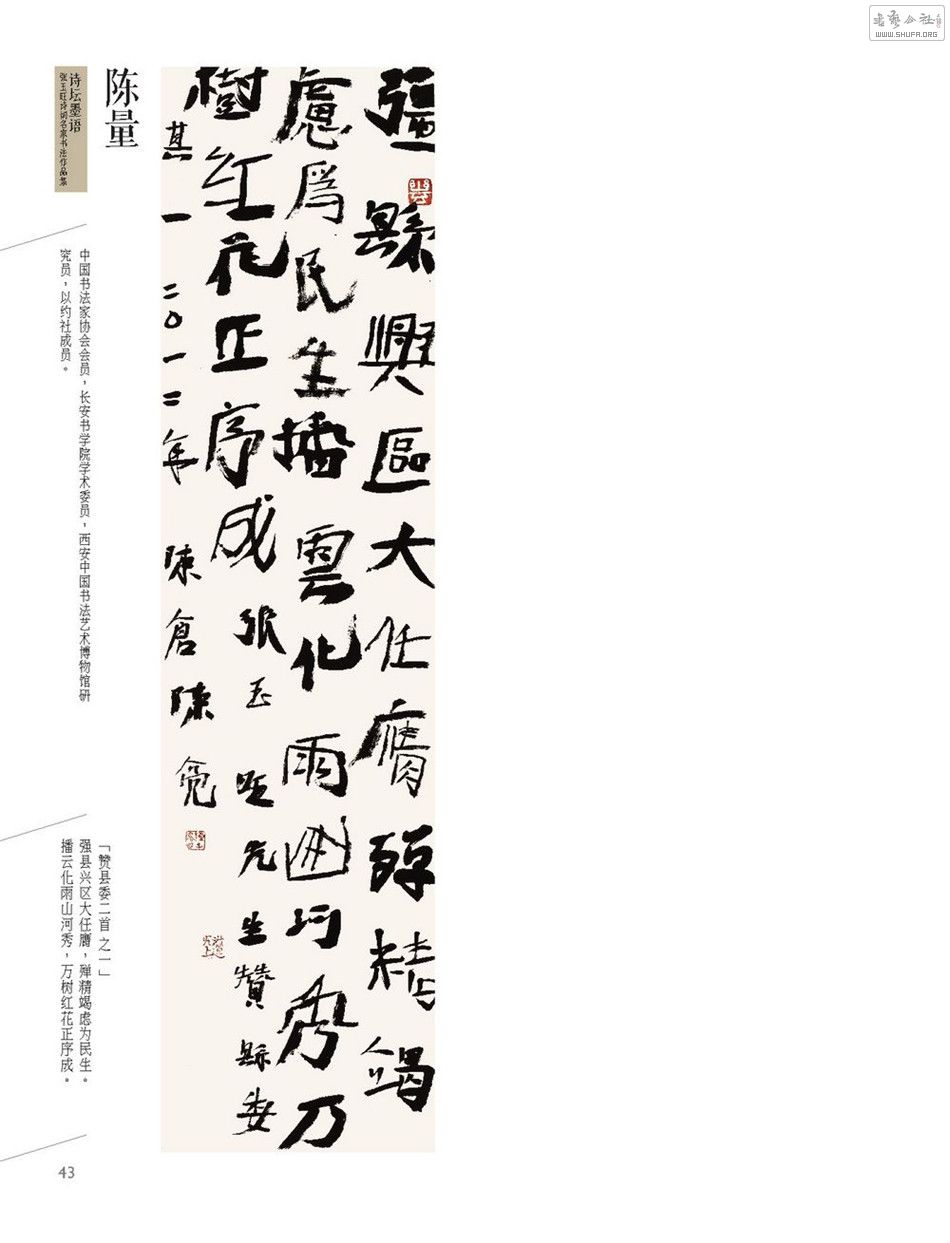 书艺公社
WWW.SHUFA.ORG
诗坛墨语
张玉旺诗词名家书法作品集
陈量
彊縣興區大任膺殫精竭
慮爲民生播雲化雨山河秀万
樹红花正序成
张玉旺先生赞縣委
其一 二〇一二年 陳倉陳量
中国书法家协会会员，长安书学院学术委员，西安中国书法艺术博物馆研
究员，以约社成员。
「赞县委二首 之一」
强县兴区大任膺，殚精竭虑为民生。
播云化雨山河秀，万树红花正序成。
43